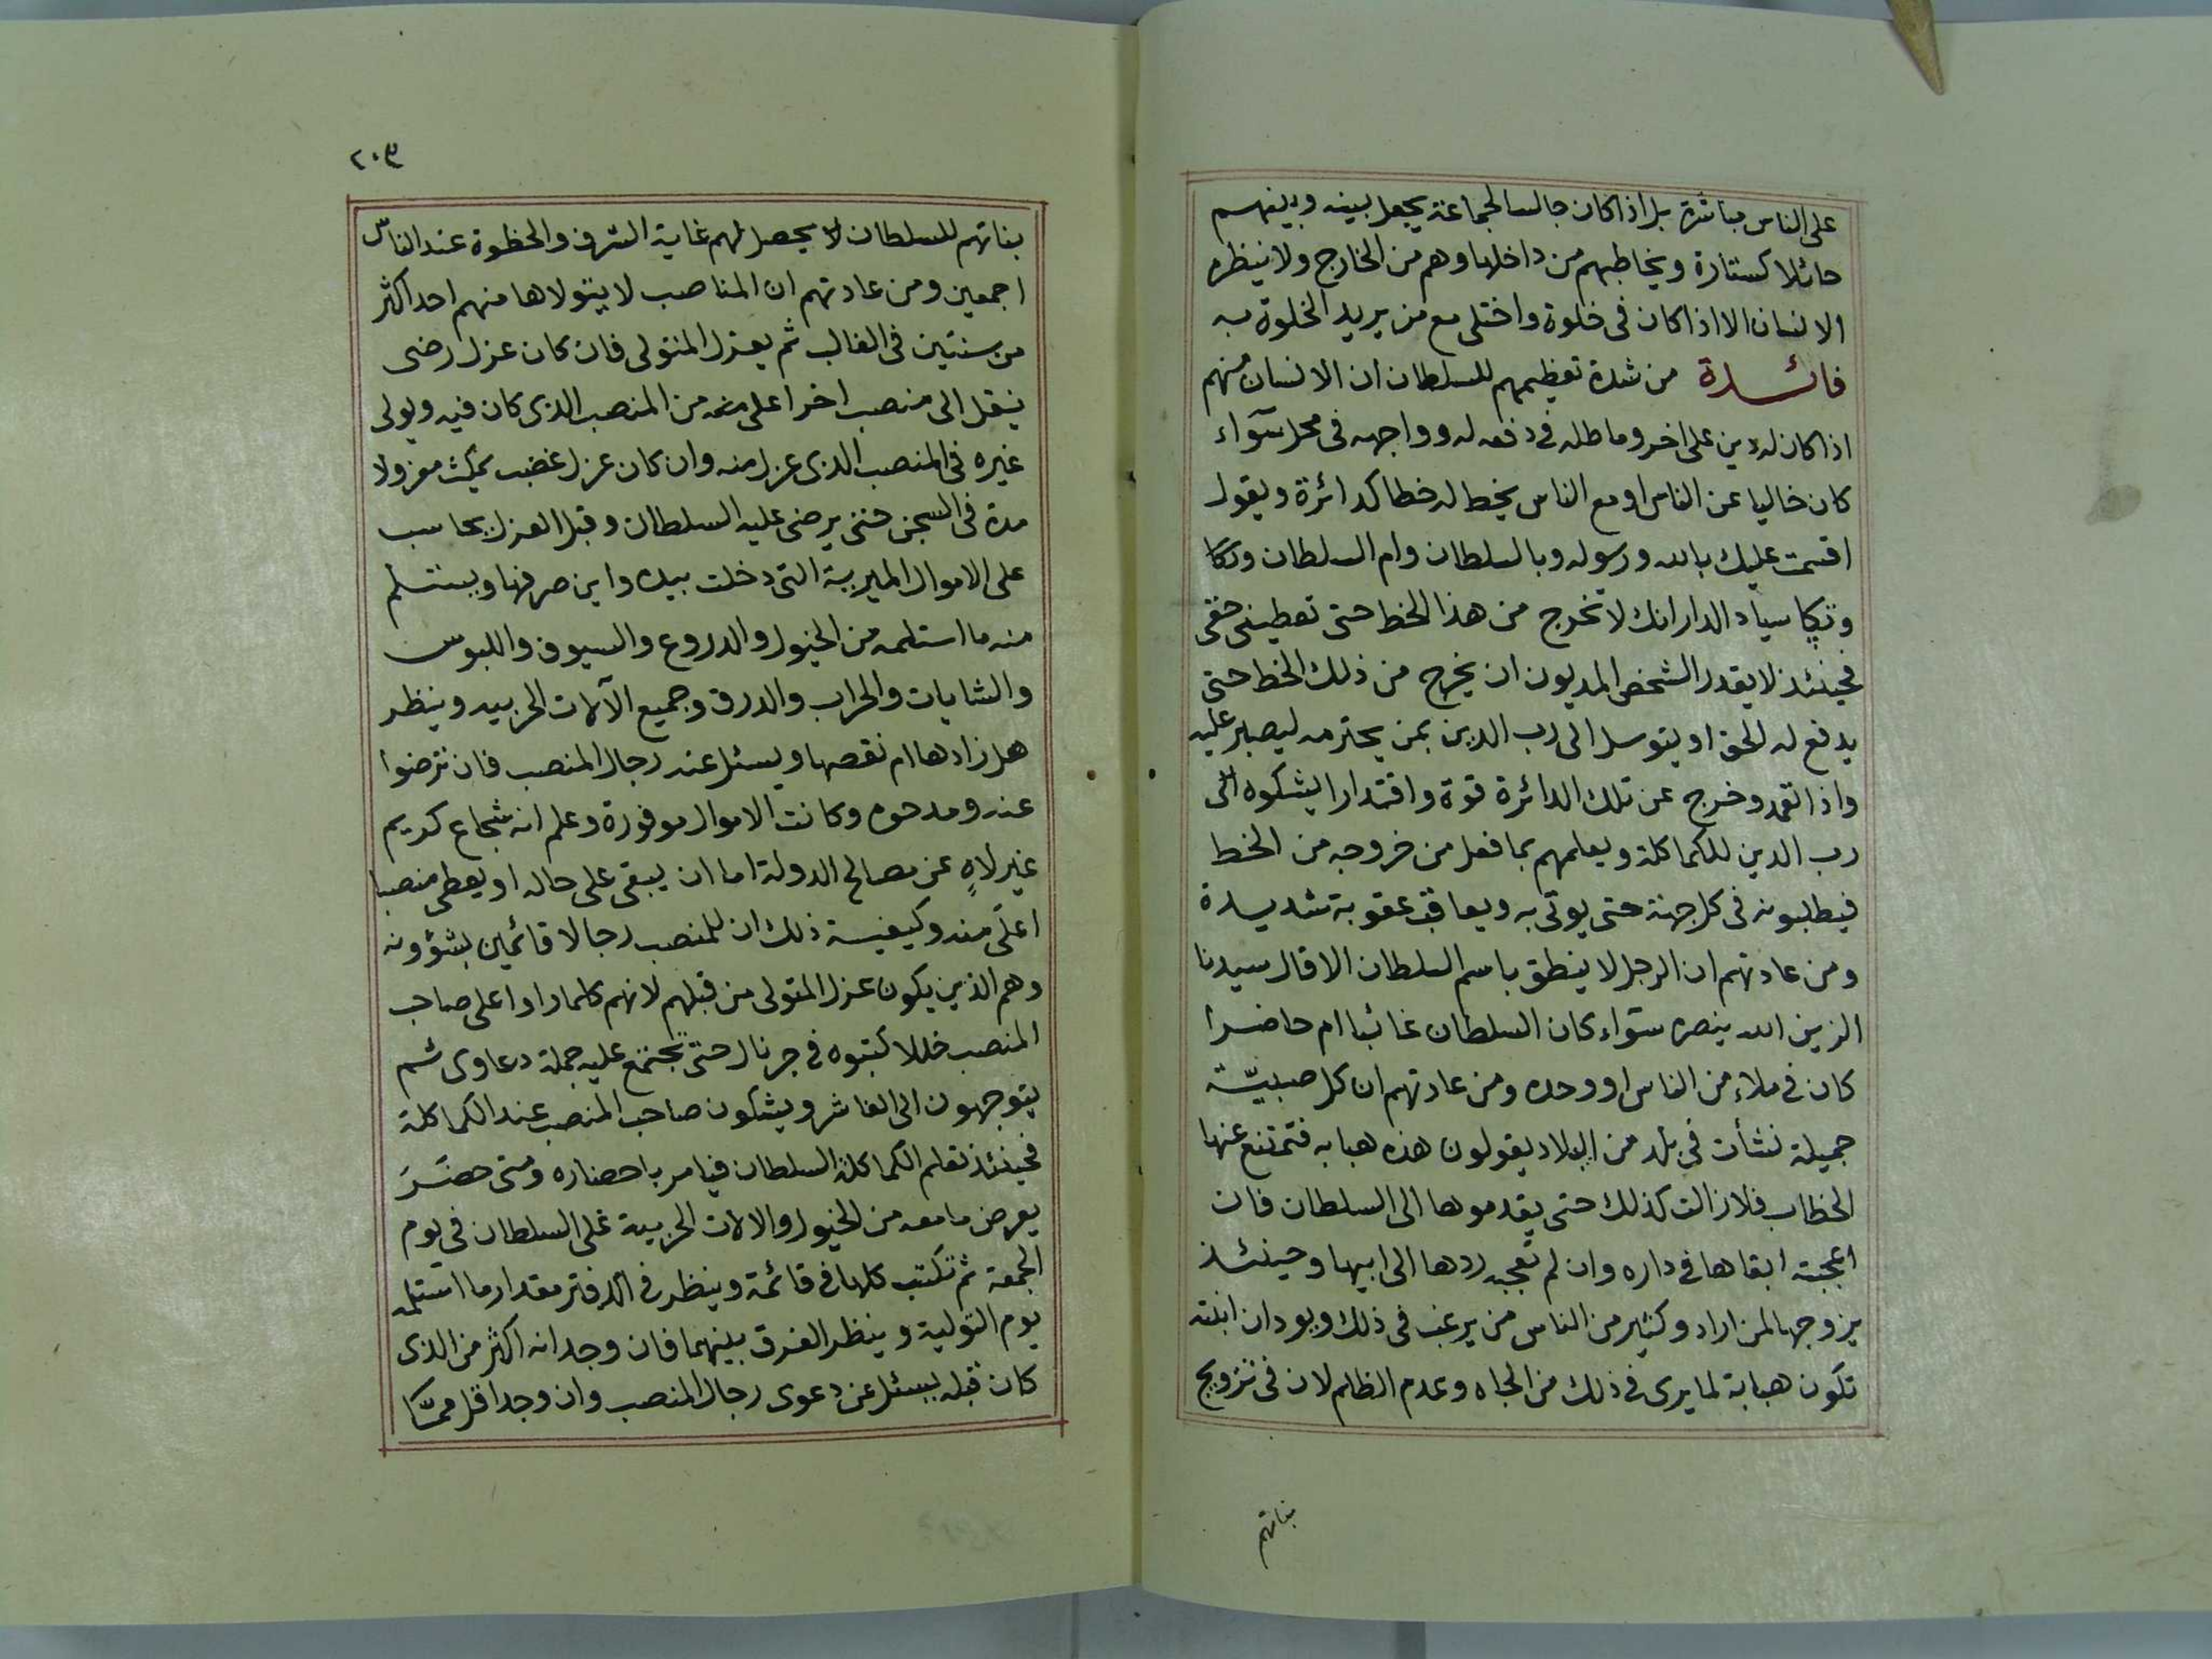 على الناس مباشرة بل اذا كان جالسا لجماعة يجعل بينه وبينهم
حائلا كستارة ويخاطبهم من داخلها وهم من الخارج ولا ينظره
الانسان الا اذا كان فى خلوة واختلى مع من يريد الخلوة به
فائدة من شدة تعظيمهم للسلطان ان الانسان منهم
اذا كان له دين على اخر وماطله فى دفعه له وواجهه فى محل سوآء
كان خاليا عن الناس او مع الناس يخط له خطا كدائرة ويقول
اقسمت عليك بالله ورسوله وبالسلطان وام السلطان
سياد الدار انك لا تخرج من هذا الخط حتى تعطينى حقى
فحينئذ لا يقدر الشخص المديون ان يخرج من ذلك الخط حتى
يدفع له الحق او يتوسل الى رب الدين بمن يحترمه ليصبر عليه
واذا تعمد وخرج عن تلك الدائرة قوة واقتدارا يشكوه الى
رب الدين للكماكلة ويعلمهم بما فعل من خروجه من الخط
فيطلبونه فى كل جهة حتى يوتى به ويعاقب عقوبة شديدة
ومن عادتهم ان الرجل لا ينطق باسم السلطان الا قال سيدنا
الزين الله ينصره سوآء كان السلطان غائبا ام حاضرا
كان فى ملاء من الناس او وحده ومن عادتهم ان كل صبيّة
جميلة نشأت فى بلد من البلاد يقولون هذه هبابه فتمتنع عنها
الخطاب فلا زالت كذلك حتى يقدموها الى السلطان فان
اعجبته ابقاها فى داره وان لم تعجبه ردها الى ابيها وحينئذ
يزوجها لمن اراد وكثير من الناس من يرغب فى ذلك ويود ان ابنته
تكون هبابة لما يرى فى ذلك من الجاه وعدم الظلم لان فى تزويج
بناتهم
٢٠٣
بناتهم للسلطان لا يحصل لهم غاية الشرف والحظوة عند الناس
اجمعين ومن عادتهم ان المناصب لا يتولاها منهم احد اكثر
من سنتين فى الغالب ثم يعزل المتولى فان كان عزل رضى
ينقل الى منصب اخر اعلى منه من المنصب الذى كان فيه ويولى
غيره فى المنصب الذى عزل منه وان كان عزل غضب يمكث معزولا
مدة فى السجن حتى يرضى عليه السلطان وقبل العزل يحاسب
على الاموال الميرية التى دخلت بيده واين صرفها ويستلم
منه ما استلمه من الخيول والدروع والسيوف واللبوس
والشايات والحراب والدرق وجميع الآلات الحربيه وينظر
هل زادها ام نقصها ويسئل عنه رجال المنصب فان ترضوا
عنه ومدحوه وكانت الاموال موفورة وعلم انه شجاع كريم
غير لاهٍ عن مصالح الدولة اما ان يبقى على حاله او يعطى منصبا
اعلى منه وكيفية ذلك ان للمنصب رجالا قائمين بشؤونه
وهم الذين يكون عزل المتولى من قبلهم لانهم كلما راوا على صاحب
المنصب خللا كتبوه فى جرنال حتى تجتمع عليه جملة دعاوى ثم
يتوجهون الى الفاشر ويشكون صاحب المنصب عند الكماكلة
فحينئذ تعلم الكماكلة السلطان فيامر باحضاره ومتى حضَرَ
يعرض ما معه من الخيول والالات الحربية على السلطان فى يوم
الجمعة ثم تكتب كلها فى قائمة وينظر فى الدفتر مقدار ما استلمه
يوم التولية وينظر الفرق بينهما فان وجد انه اكثر من الذى
كان قبله يسئل عن دعوى رجال المنصب وان وجد اقل ممّا